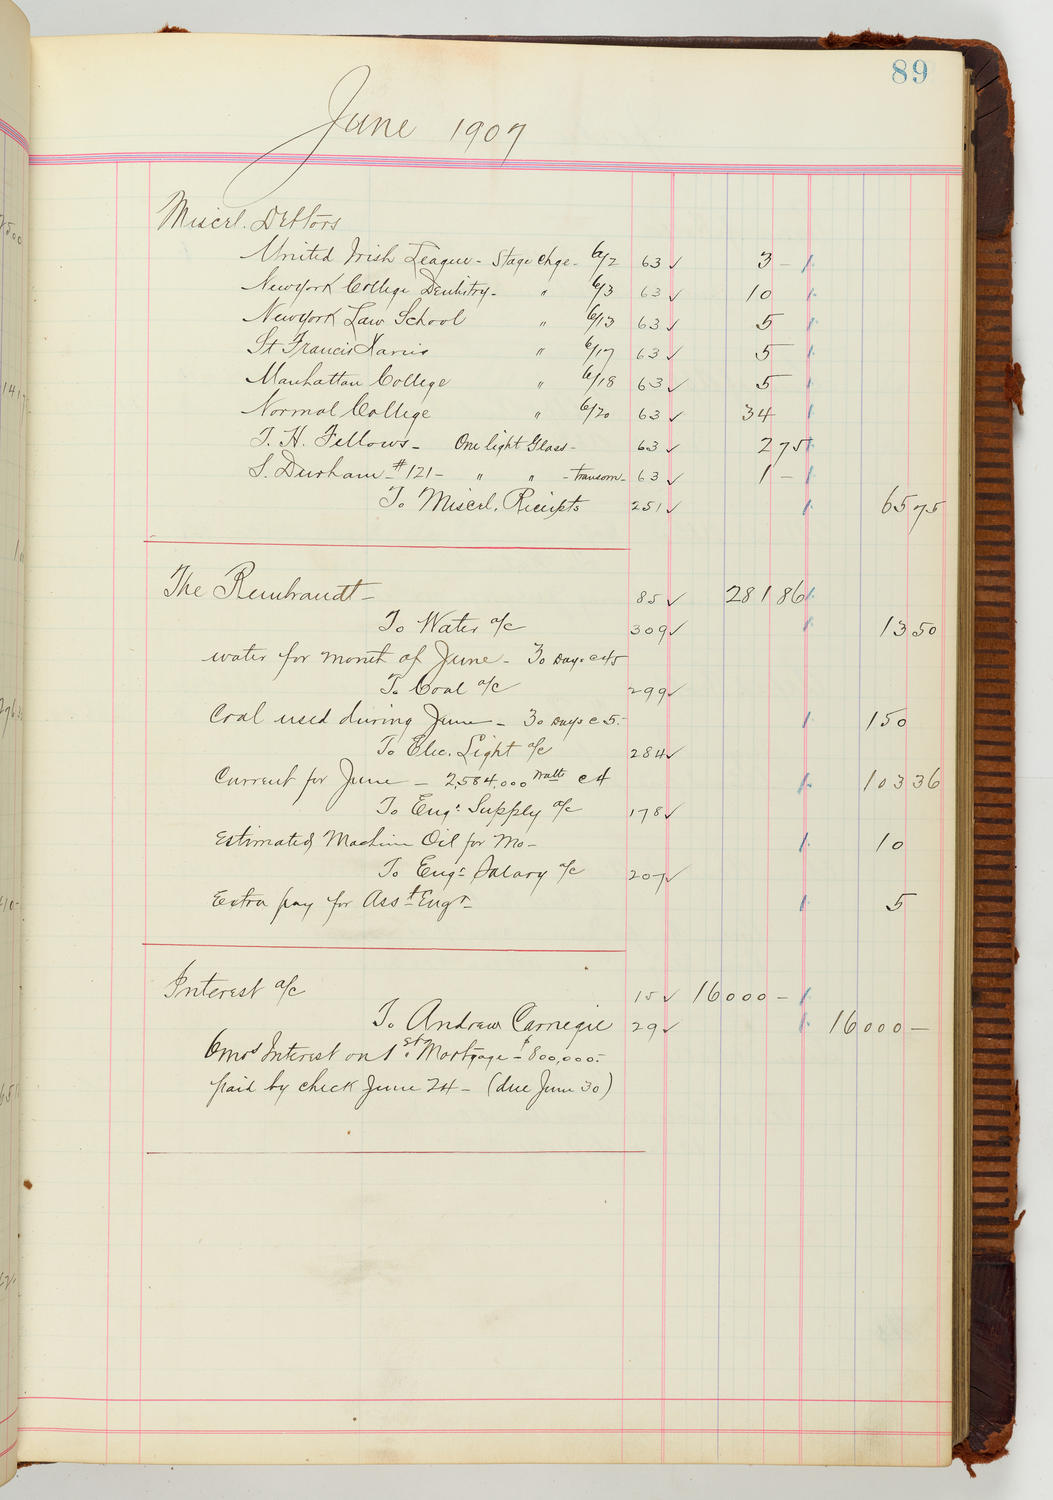 89
June 1907
Miscel. Debtors
United Irish League - Stage chge - 6/2 63 ✓ 3 -
New York College Dentistry - " 6/3 63 ✓ 10
New York Law School " 6/13 63 ✓ 5
St Francis Xavier " 6/17 63 ✓ 5
Manhattan College " 6/18 63 ✓ 5
Normal College " 6/20 63 ✓ 34
T. H. Fellows - One light Glass - 63 ✓ 2 75
S. Durham - #121 - " " - transom - 63 ✓ 1 -
To Miscel. Receipts 251 ✓ 65 75
The Rembrandt - 85 ✓ 281 86
To Water a/c 309 ✓ 13 50
water for month of June - 30 Days @ 45
To Coal a/c 299 ✓
Coal used during June - 30 Days @ 5.- 150
To Elec. Light a/c 284 ✓
Current for June - 2,584,000 Watts @ 4 103 36
To Engr Supply a/c 178 ✓
Estimated Machine Oil for Mo - 10
To Engr Salary a/c 207 ✓
Extra pay for Asst Engr - 5
Interest a/c 15 ✓ 16000 -
To Andrew Carnegie 29 ✓ 16000 -
6mos Interest on 1st Mortgage - $800,000.-
paid by check June 24 - (due June 30)